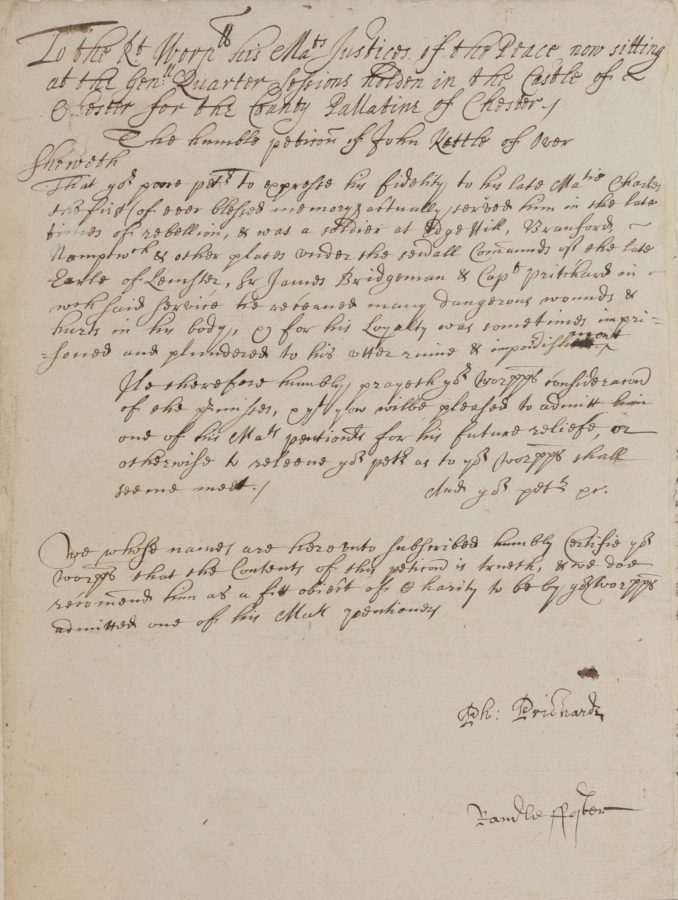 To the Rt Worpll his Mats Justices of the Peace now sitting
at the Genll Quarter Sessions holden in the Castle of
Chester for the County Pallatine of Chester /
The humble peticon of John Kettle of Over
Sheweth
That yor poore petr to expresse his fidelity to his late Matie Charles
the first (of ever blessed memory) actually served him in the late
times of rebellion, & was a soldier at Edge Hill, Branford,
Namptwch & other places under the severall Commands of the late
Earle of Leinster, Sr James Bridgeman & Capt Pritchard in
wch said service he receaved many dangerous wounds &
hurts in his body, & for his Loyalty was sometimes impri=
=soned and plundered to his utter ruine & impovrishment /
He therefore humbly prayeth yor Worpps consideracon
of the premisses, & yt you wilbe pleased to admitt him
one of his Mats pentionrs for his future reliefe, or
otherwise to releeve yor petr as to yor Worpps shall
seeme meet. / And yor petr pr.
We whose names are hereunto subscribed humbly Certifie yor
Worpps that the Contents of this peticon is trueth, & we doe
recomend him as a fitt obiect of Charity to be by yor Worpps
admitted one of his Mats pentioners
Ph: Prichard
Randle ffoster